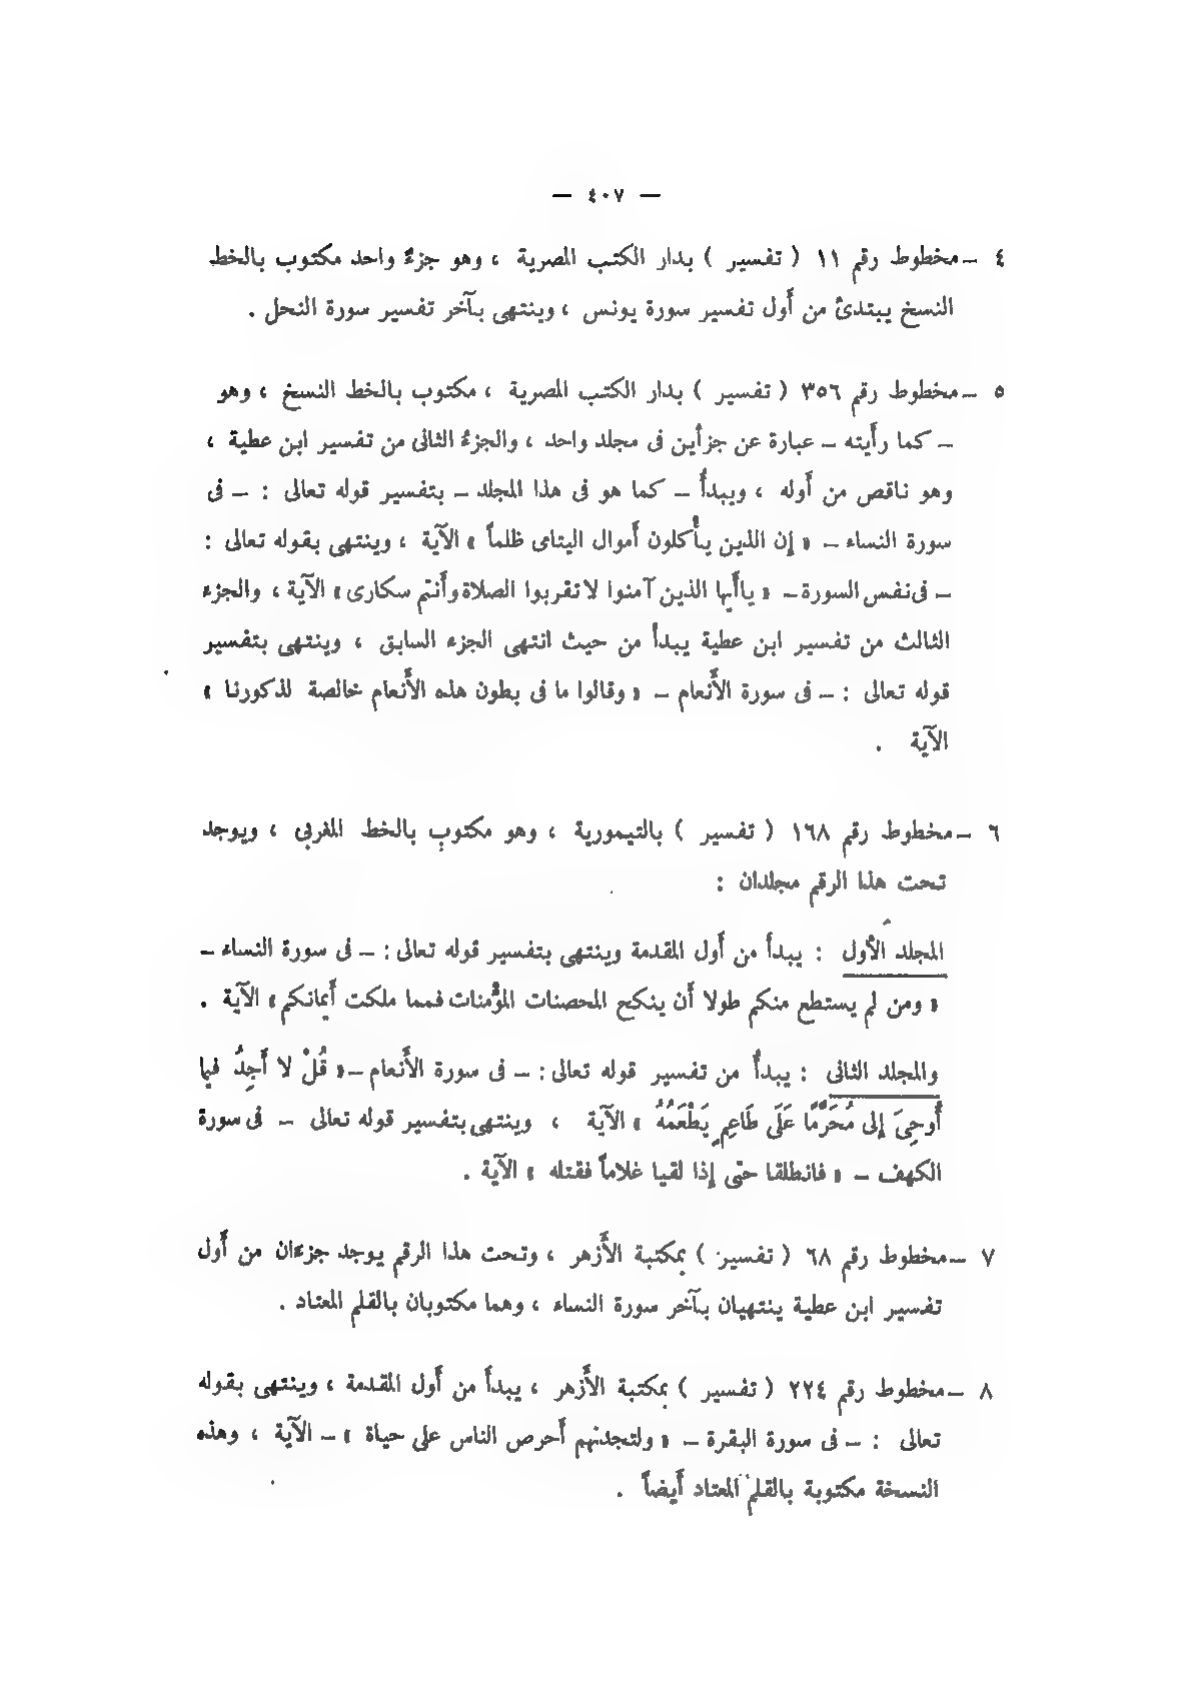 — ٤٠٧ —
٤ – مخطوط رقم ١١ ( تفسير ) بدار الكتب المصرية ، وهو جزءٌ واحد مكتوب بالخط
النسخ يبتدئ من أَول تفسير سورة يونس ، وينتهى بآخر تفسير سورة النحل .
٥ – مخطوط رقم ٣٥٦ ( تفسير ) بدار الكتب المصرية ، مكتوب بالخط النسخ ، وهو
– كما رأَيته – عبارة عن جزأَين فى مجلد واحد ، والجزءُ الثانى من تفسير ابن عطية ،
وهو ناقص من أَوله ، ويبدأُ – كما هو فى هذا المجلد – بتفسير قوله تعالى : – فى
سورة النساء – « إن الذين يأْكلون أَموال اليتامى ظلماً » الآية ، وينتهى بقوله تعالى :
– فى نفس السورة – « ياأَيها الذين آمنوا لا تقربوا الصلاة وأَنتم سكارى » الآية ، والجزء
الثالث من تفسير ابن عطية يبدأُ من حيث انتهى الجزء السابق ، وينتهى بتفسير
قوله تعالى : – فى سورة الأَنعام – « وقالوا ما فى بطون هذه الأَنعام خالصة لذكورنا »
الآية .
٦ – مخطوط رقم ١٦٨ ( تفسير ) بالتيمورية ، وهو مكتوب بالخط المغربى ، ويوجد
تحت هذا الرقم مجلدان :
المجلد الأَول : يبدأُ من أَول المقدمة وينتهى بتفسير قوله تعالى : – فى سورة النساء –
« ومن لم يستطع منكم طولا أَن ينكح المحصنات المؤْمنات فمما ملكت أَيمانكم » الآية .
والمجلد الثانى : يبدأُ من تفسير قوله تعالى : – فى سورة الأَنعام – « قُلْ لا أَجِدُ فيما
أُوحِىَ إِلى مُحَرَّمًا عَلَى طَاعِمٍ يَطْعَمُهُ » الآية ، وينتهى بتفسير قوله تعالى – فى سورة
الكهف – « فانطلقا حتى إذا لقيا غلاماً فقتله » الآية .
٧ – مخطوط رقم ٦٨ ( تفسير ) بمكتبة الأَزهر ، وتحت هذا الرقم يوجد جزءان من أَول
تفسير ابن عطية ينتهيان بآخر سورة النساء ، وهما مكتوبان بالقلم المعتاد .
٨ – مخطوط رقم ٢٢٤ ( تفسير ) بمكتبة الأَزهر ، يبدأُ من أَول المقدمة ، وينتهى بقوله
تعالى : – فى سورة البقرة – « ولتجدنهم أَحرص الناس على حياة » – الآية ، وهذه
النسخة مكتوبة بالقلم المعتاد أَيضاً .